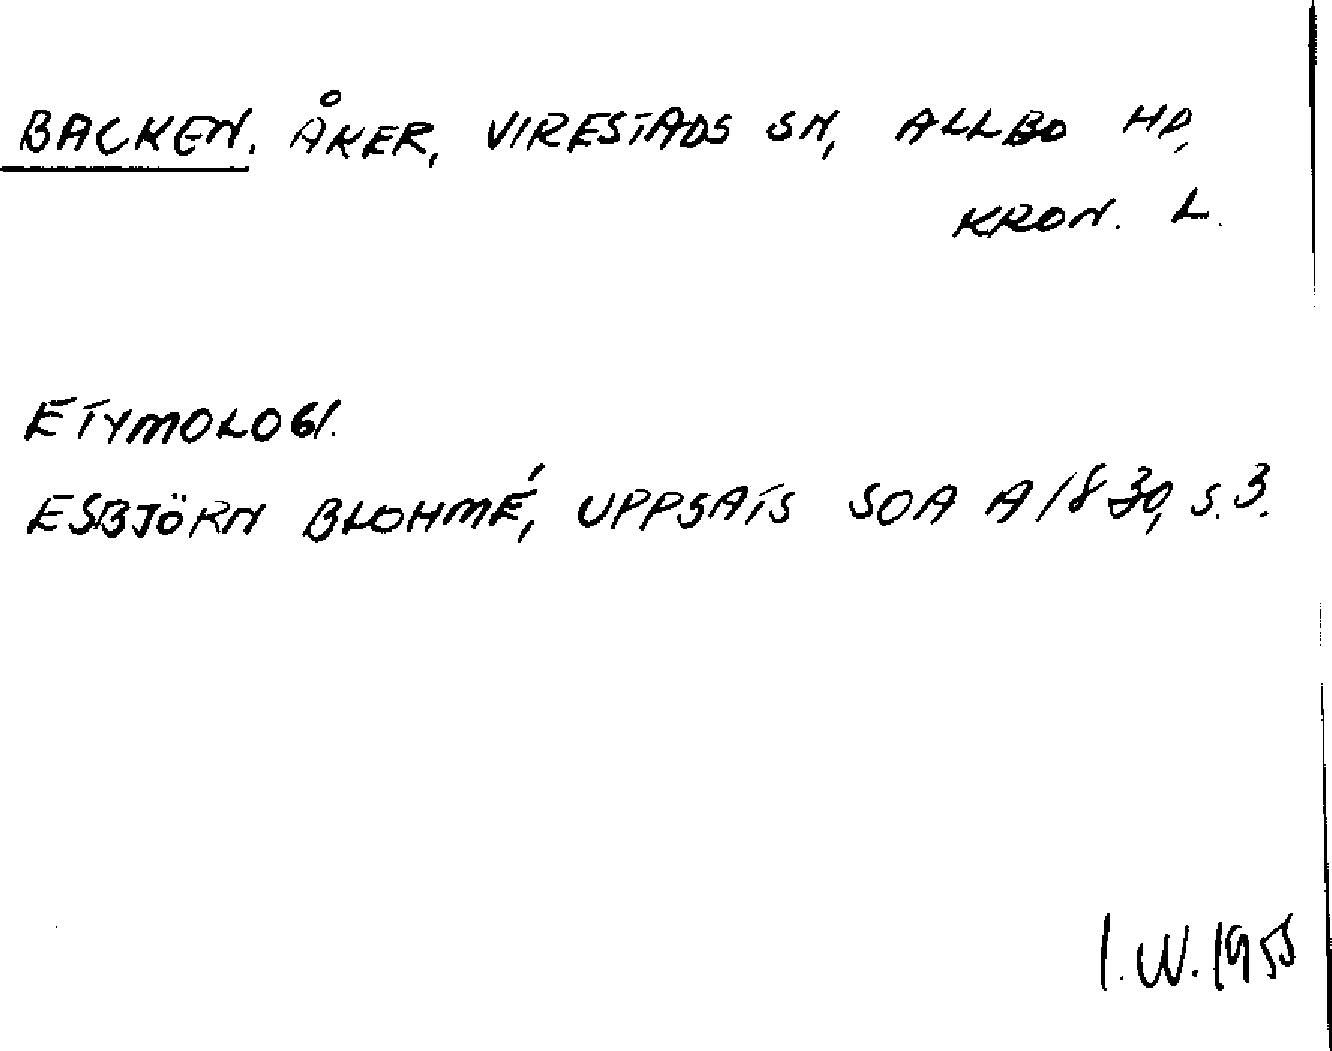 BACKEN. ÅKER, VIRESTADS SN, ALLBO HD,
KRON. L.
ETYMOLOGI.
ESBJÖRN BLOHMÉ, UPPSATS SOA A1830, S. 3.
I. W. 1955